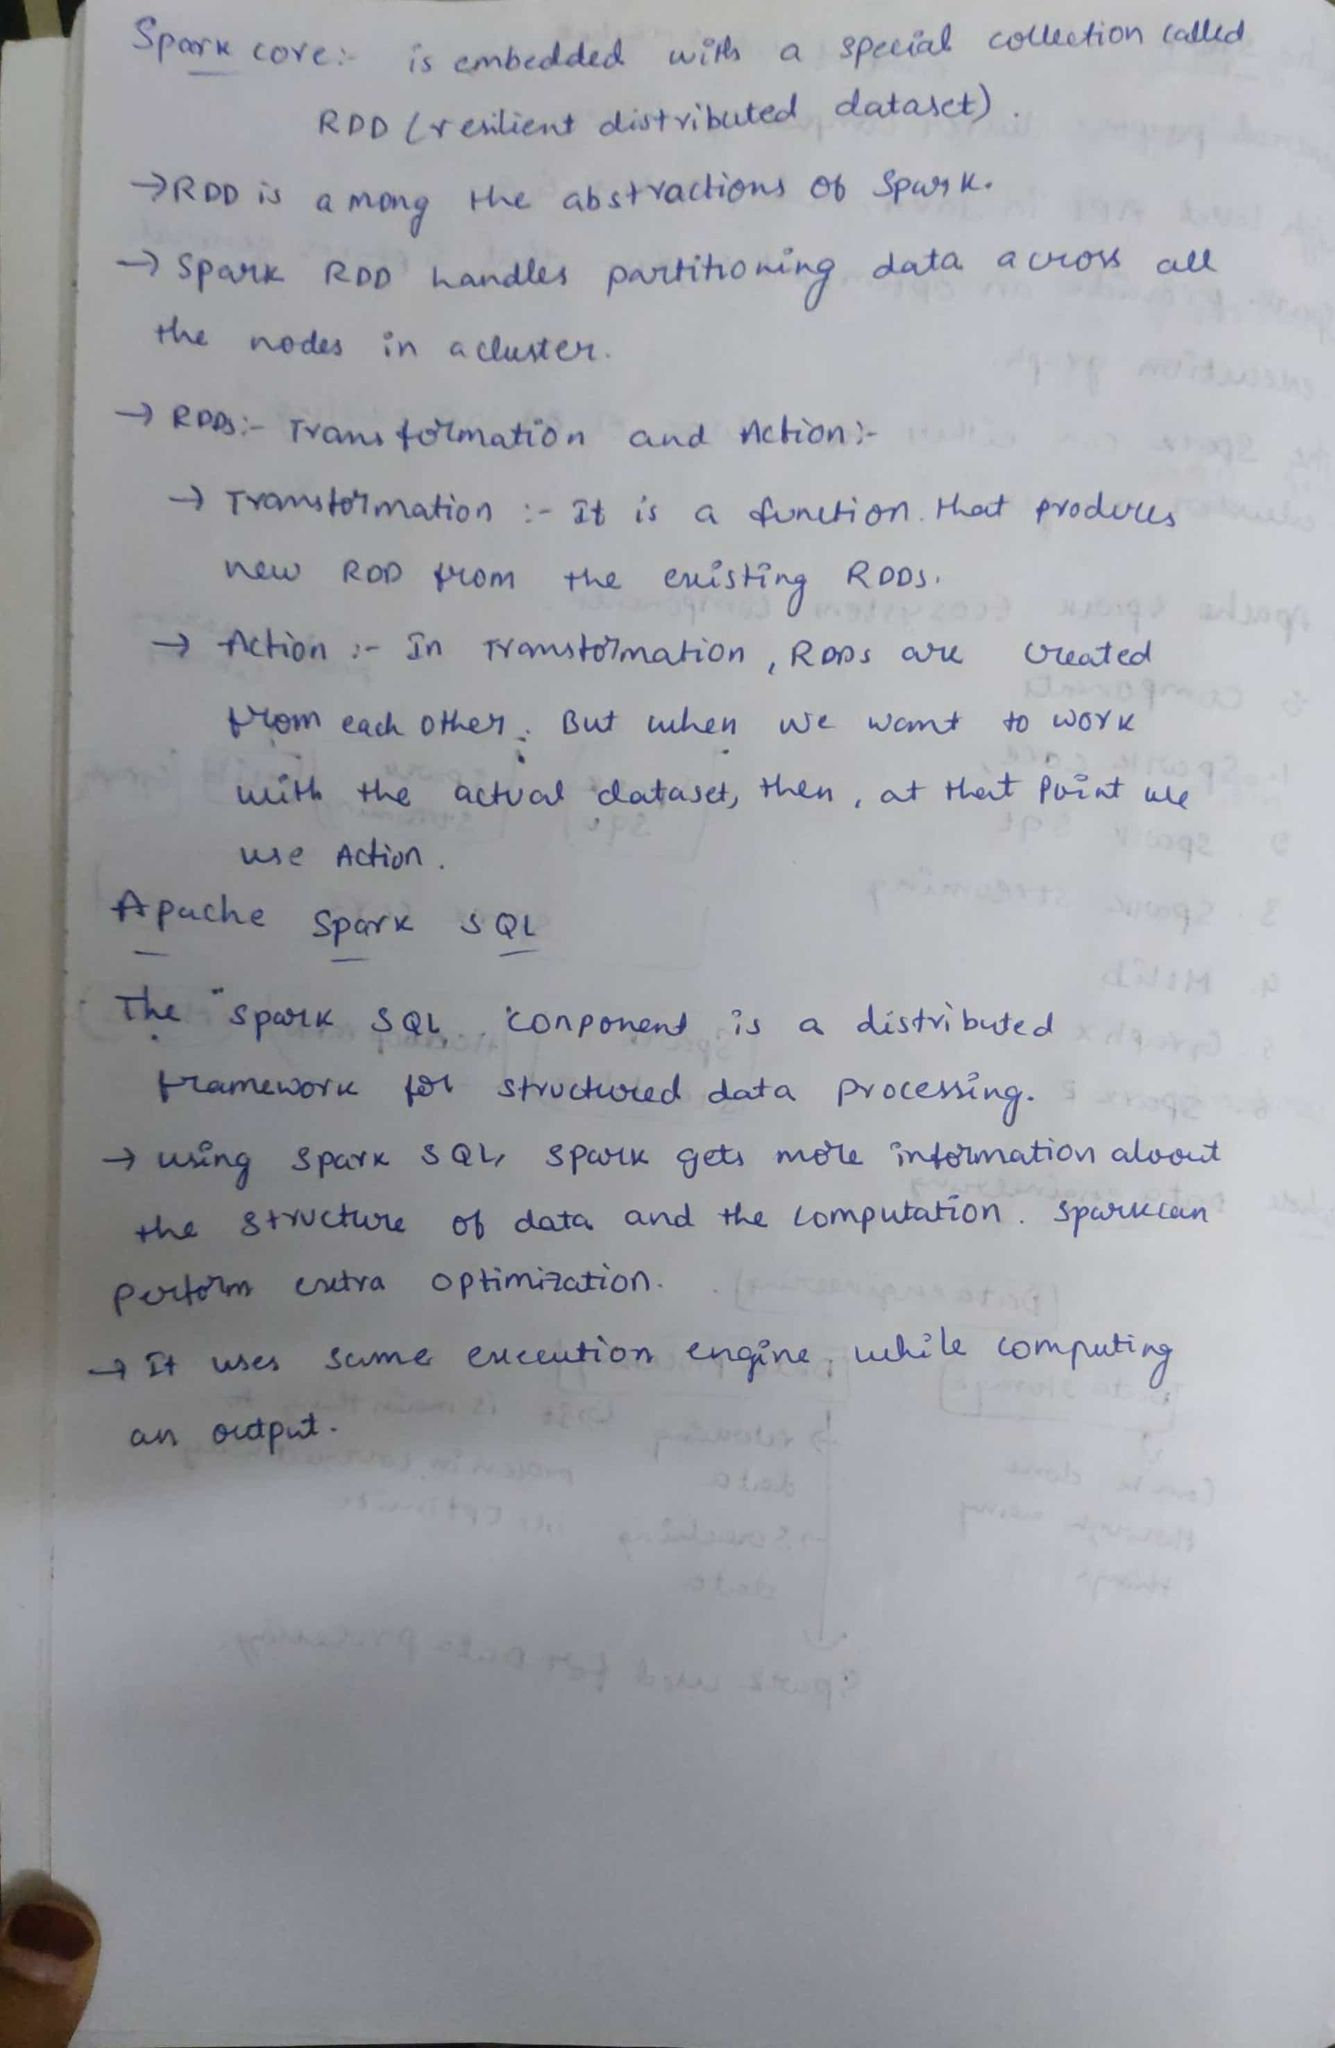 Spark core:- is embedded with a special collection called
RDD (resilient distributed dataset).
→ RDD is among the abstractions of Spark.
→ Spark RDD handles partitioning data across all
the nodes in a cluster.
→ RDDs:- Transformation and Action:-
→ Transformation :- It is a function that produces
new RDD from the existing RDDs.
→ Action :- In Transformation, RDDs are created
from each other. But when we want to work
with the actual dataset, then, at that point we
use Action.
Apache Spark SQL
The Spark SQL conponent is a distributed
framework for structured data processing.
→ using Spark SQL, Spark gets more information about
the structure of data and the computation. Spark can
perform extra optimization.
→ It uses same execution engine while computing
an output.